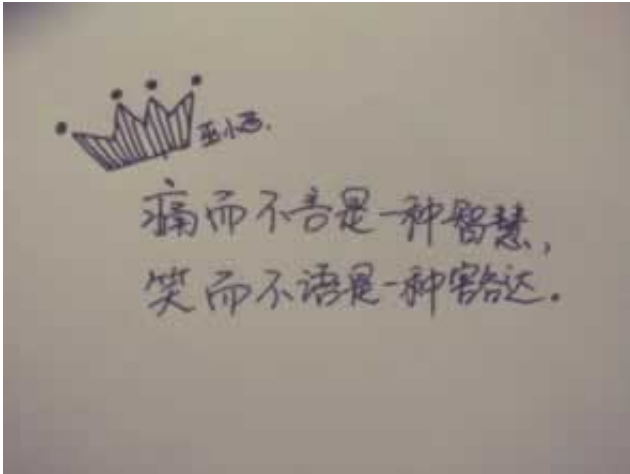 巫小西.
痛而不言是一种智慧,
笑而不语是一种豁达.